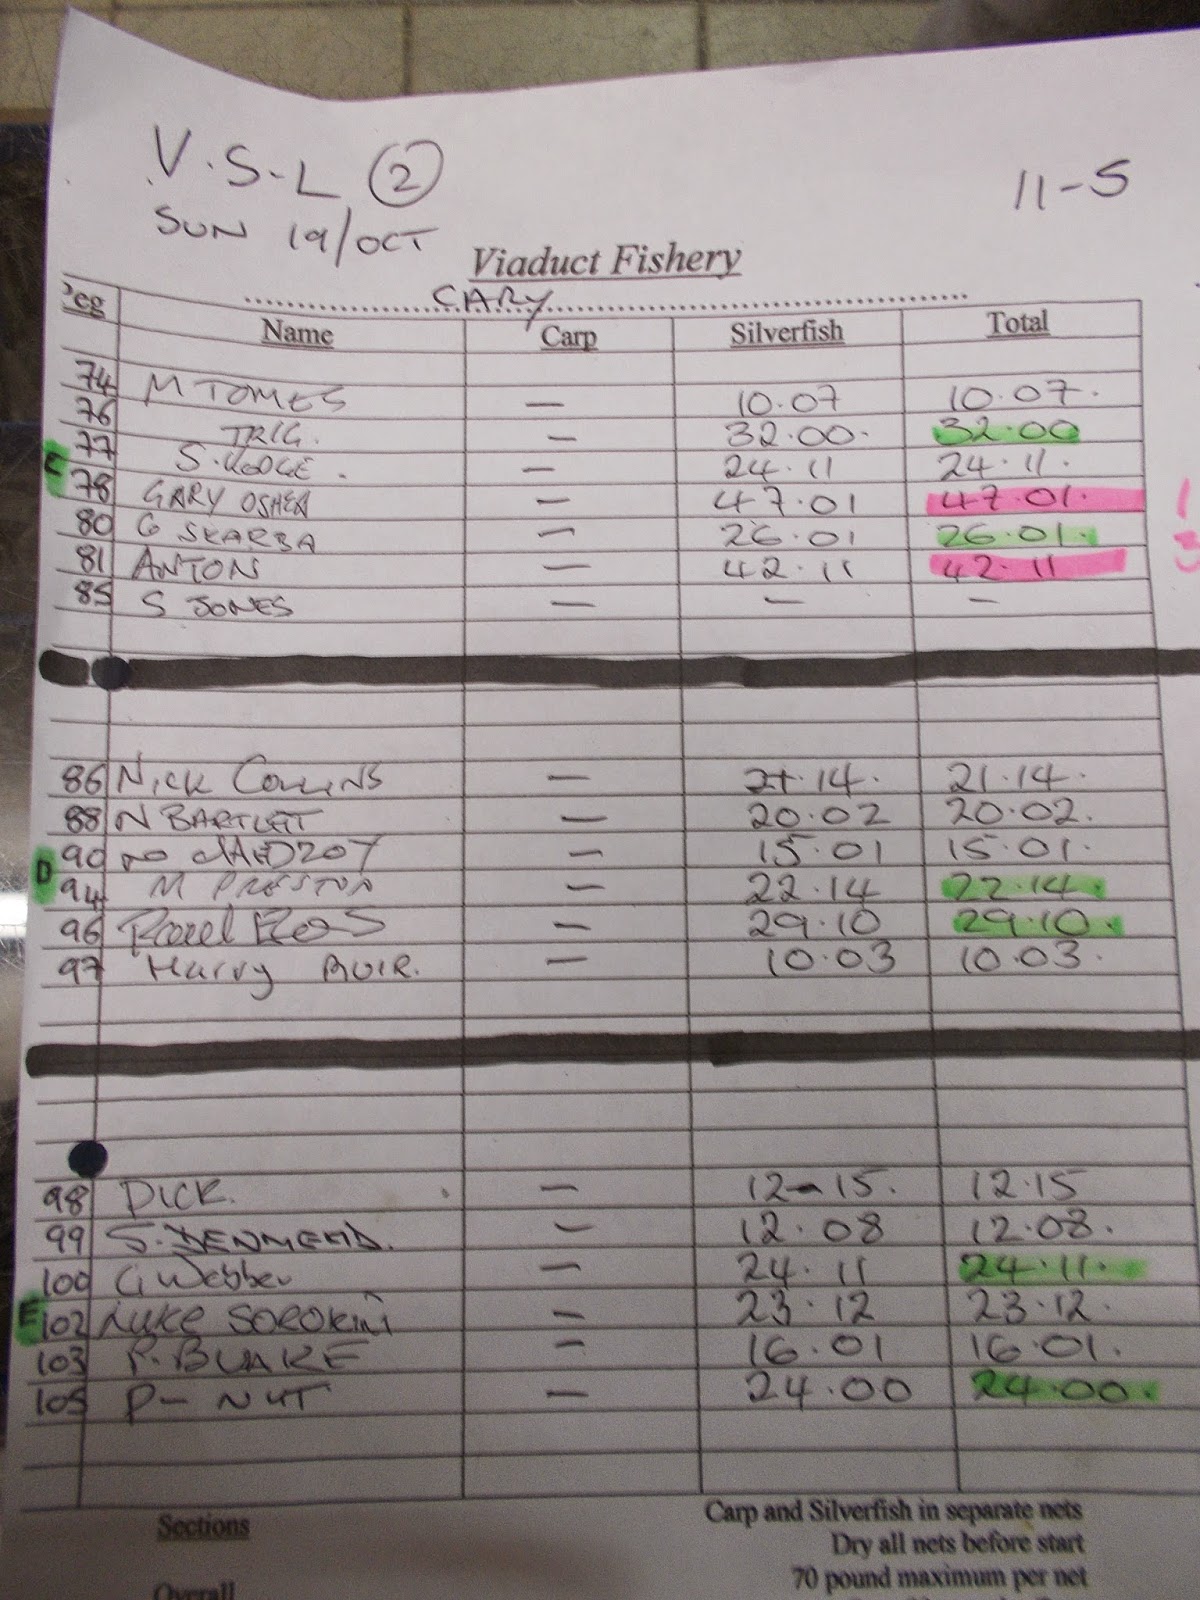 V.S-L 2
11-5
SUN 19/OCT
Viaduct Fishery
CARY
Peg Name Carp Silverfish Total
74 M TOMES — 10.07 10.07.
76 TRIG. — 32.00. 32.00
77 — 24.11 24.11.
C
78 GARY OSHEA — 47.01 47.01. 1
80 G SKARBA — 26.01 26.01. 3
81 ANTON — 42.11 42.11
85 S JONES — — —
86 NICK COLLINS — 21.14. 21.14.
88 N BARTLETT — 20.02 20.02.
90 — 15.01 15.01.
D
94 M PRESTON — 22.14 22.14.
96 — 29.10 29.10.
97 Harry MUIR. — 10.03 10.03.
98 DICK. — 12-15. 12.15
99 S. DENMEAD. — 12.08 12.08.
100 G Webber — 24.11 24.11.
E 102 Luke SOROKIN — 23.12 23.12.
103 P. BLAKE — 16.01 16.01.
105 P- NUT — 24.00 24.00.
Sections
Carp and Silverfish in separate nets
Dry all nets before start
70 pound maximum per net
Overall